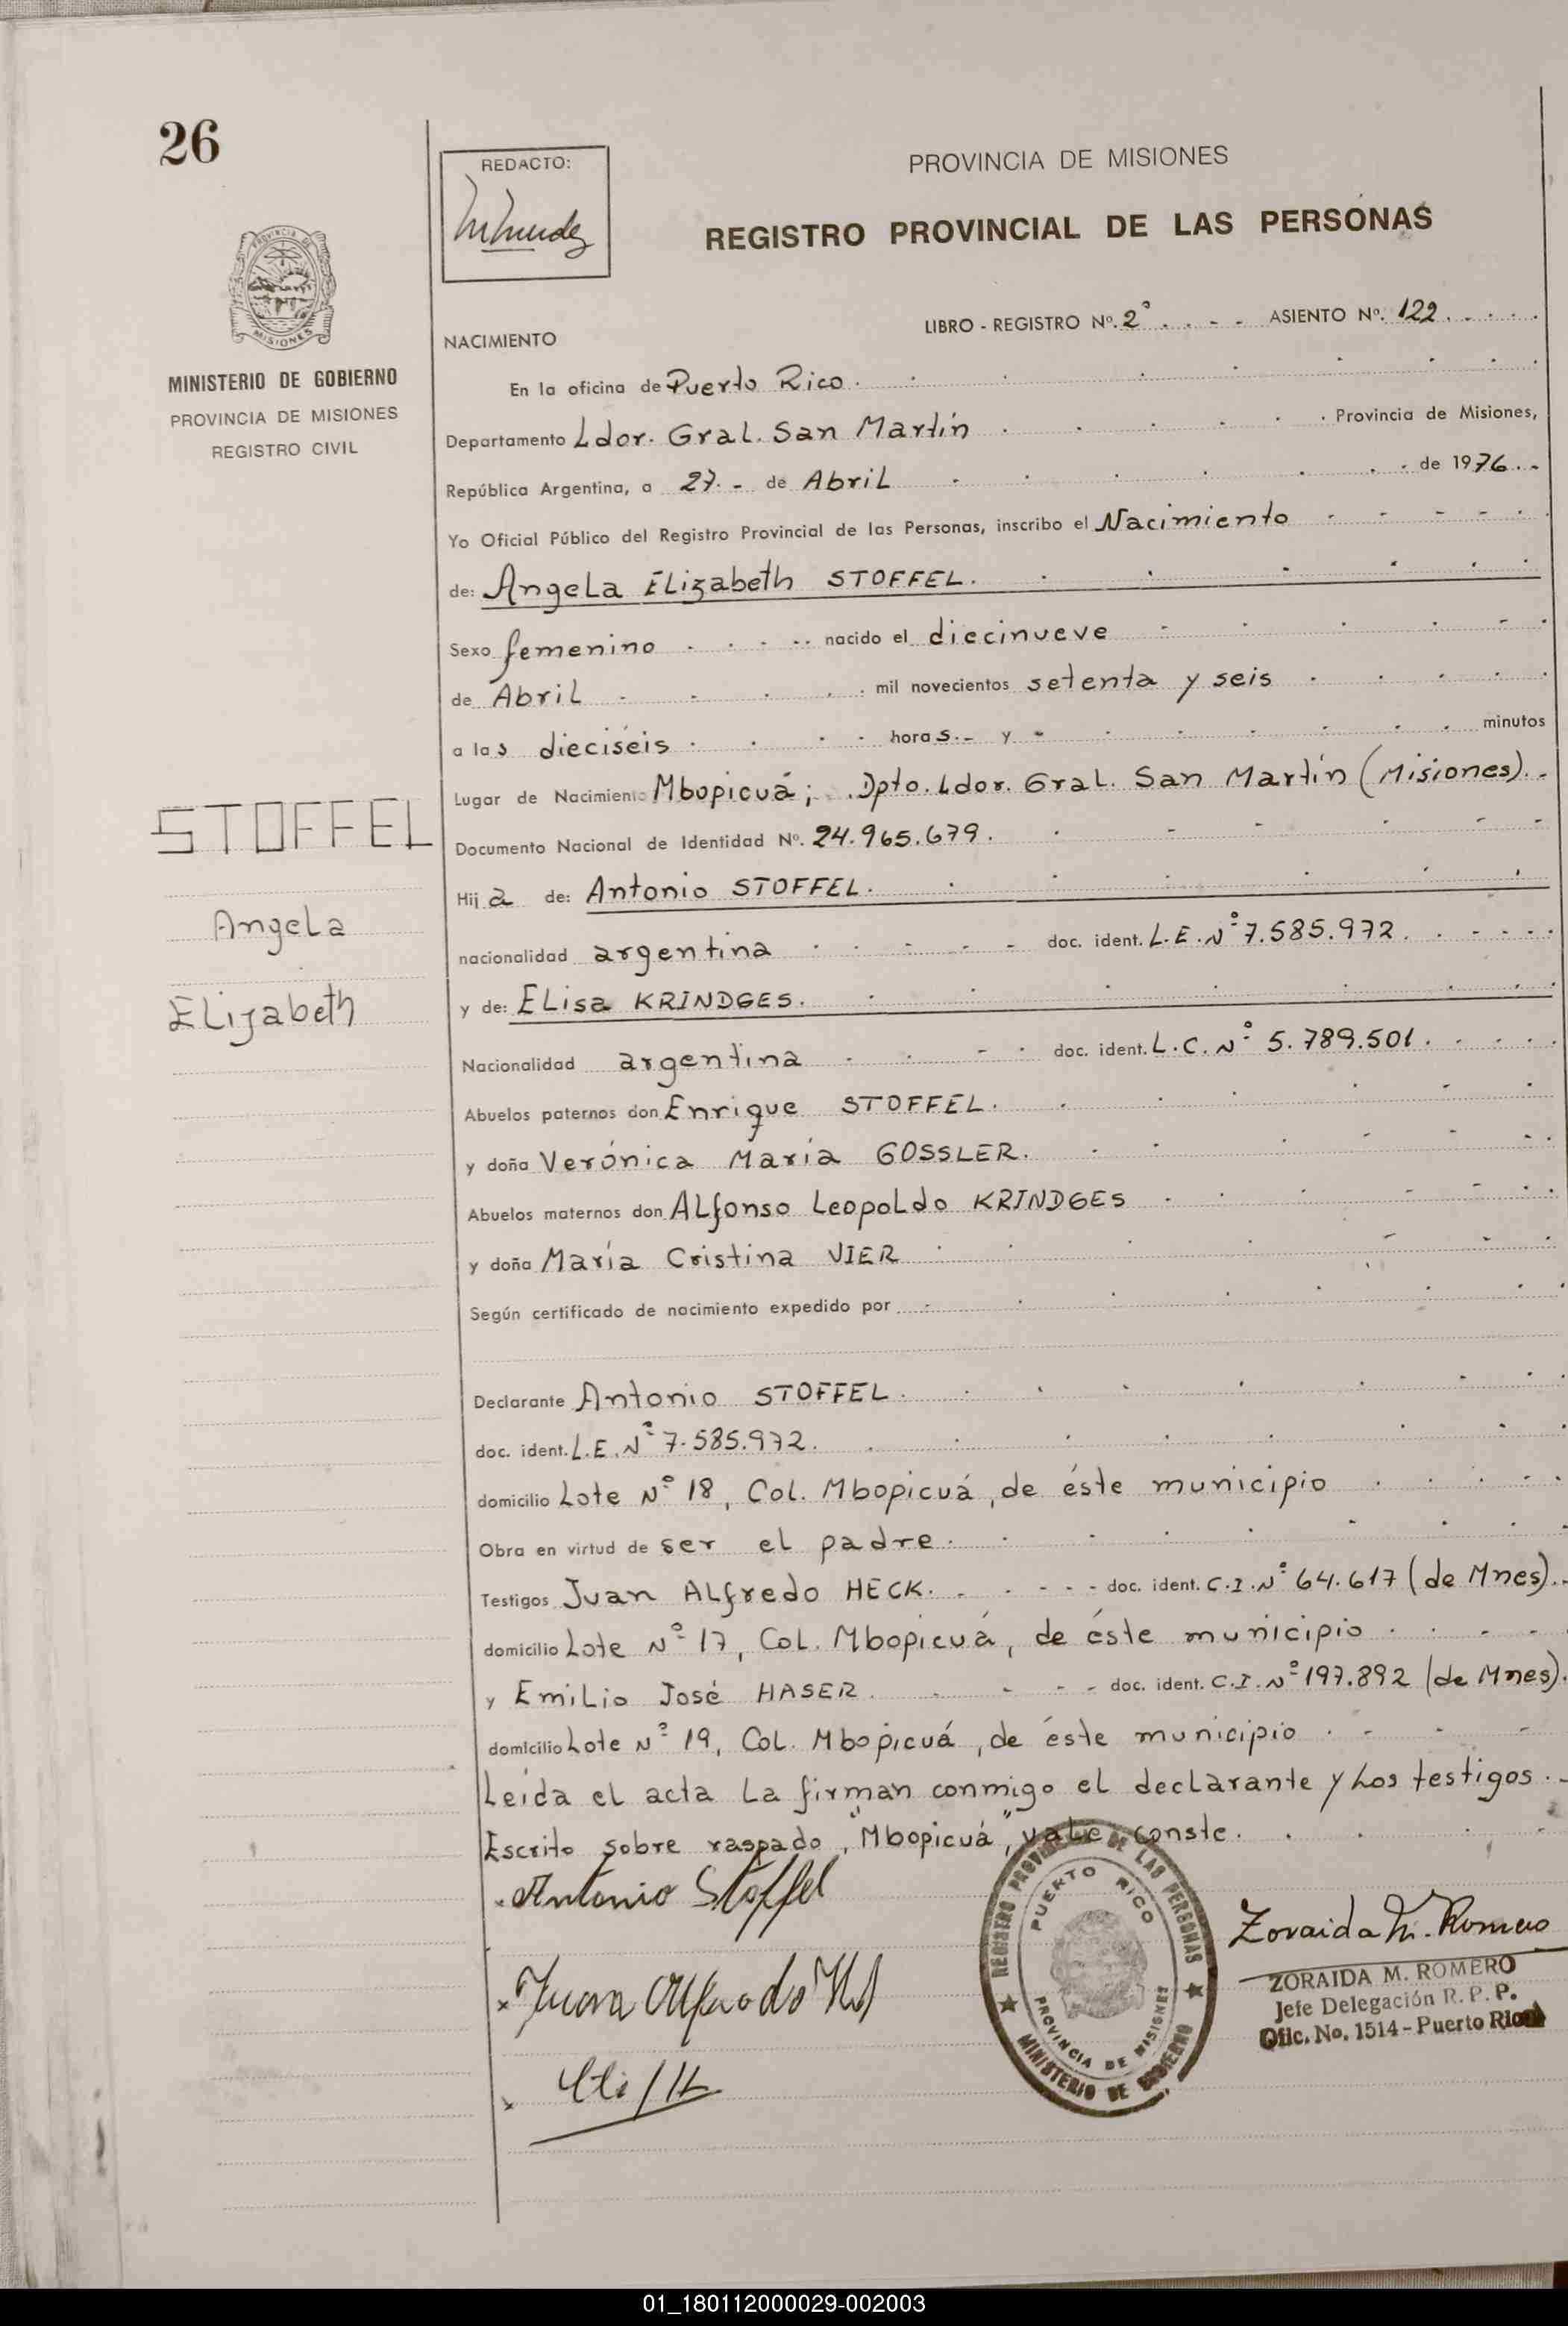 26
REDACTO:
PROVINCIA DE MISIONES
REGISTRO PROVINCIAL DE LAS PERSONAS
PROVINCIA DE
MISIONES
MINISTERIO DE GOBIERNO
PROVINCIA DE MISIONES
REGISTRO CIVIL
LIBRO - REGISTRO Nº. 2º ASIENTO Nº. 122
NACIMIENTO
En la oficina de Puerto Rico.
Departamento Ldor. Gral. San Martín Provincia de Misiones,
República Argentina, a 27.- de Abril de 1976.-
Yo Oficial Público del Registro Provincial de las Personas, inscribo el Nacimiento
de: Angela Elizabeth STOFFEL.
Sexo femenino nacido el diecinueve
de Abril mil novecientos setenta y seis
a las dieciséis horas.- y - minutos
Lugar de Nacimiento Mbopicuá; Dpto. Ldor. Gral. San Martín (Misiones).-
Documento Nacional de Identidad Nº. 24.965.679.
Hija de: Antonio STOFFEL.
nacionalidad argentina doc. ident. L.E. Nº 7.585.972.
y de: Elisa KRINDGES.
Nacionalidad argentina doc. ident. L.C. Nº 5.789.501.
Abuelos paternos don Enrique STOFFEL.
y doña Verónica María GOSSLER.
Abuelos maternos don Alfonso Leopoldo KRINDGES
y doña María Cristina VIER
Según certificado de nacimiento expedido por
Declarante Antonio STOFFEL.
doc. ident. L.E. Nº 7.585.972.
domicilio Lote Nº 18, Col. Mbopicuá, de éste municipio
Obra en virtud de ser el padre.
Testigos Juan Alfredo HECK. doc. ident. C.I. Nº 64.617 (de Mnes).-
domicilio Lote Nº 17, Col. Mbopicuá, de éste municipio
y Emilio José HASER doc. ident. C.I. Nº 197.892 (de Mnes).
domicilio Lote Nº 19, Col. Mbopicuá, de éste municipio
Leída el acta la firman conmigo el declarante y los testigos.-
Escrito sobre raspado, "Mbopicuá", vale conste.
STOFFEL
Angela
Elizabeth
Antonio Stoffel
Juan Alfredo
REGISTRO PROVINCIAL DE LAS PERSONAS
PUERTO RICO
PROVINCIA DE MISIONES
MINISTERIO DE GOBIERNO
Zoraida M. Romero
ZORAIDA M. ROMERO
Jefe Delegación R. P. P.
Ofic. No. 1514 - Puerto Rico
01_180112000029-002003